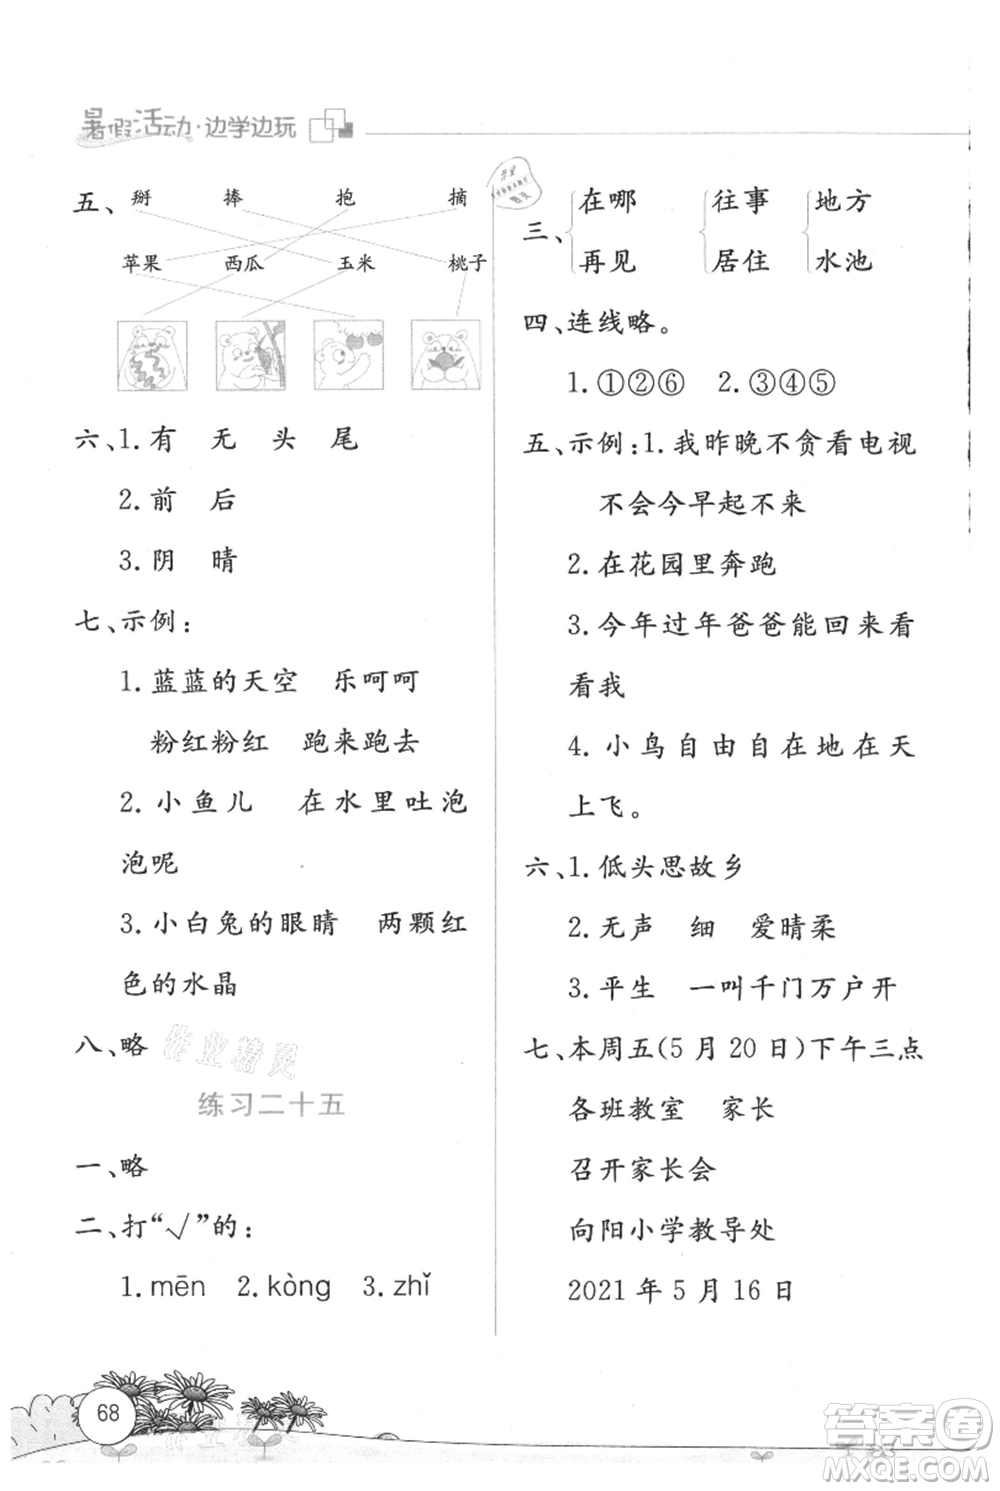 暑假活动·边学边玩
五、 掰 捧 抱 摘
苹果 西瓜 玉米 桃子
六、1.有 无 头 尾
2.前 后
3.阴 晴
七、示例：
1.蓝蓝的天空 乐呵呵
粉红粉红 跑来跑去
2.小鱼儿 在水里吐泡
泡呢
3.小白兔的眼睛 两颗红
色的水晶
八、略
作业精灵
练习二十五
一、略
二、打“√”的：
1.mēn 2.kòng 3.zhǐ
三、 在哪 往事 地方
再见 居住 水池
四、连线略。
1.①②⑥ 2.③④⑤
五、示例：1.我昨晚不贪看电视
不会今早起不来
2.在花园里奔跑
3.今年过年爸爸能回来看
看我
4.小鸟自由自在地在天
上飞。
六、1.低头思故乡
2.无声 细 爱晴柔
3.平生 一叫千门万户开
七、本周五(5月20日)下午三点
各班教室 家长
召开家长会
向阳小学教导处
2021年5月16日
68
答案圈
MXQE.COM